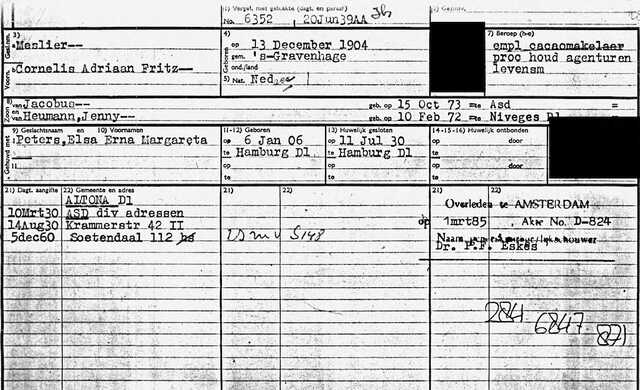 1) Vergel. met gehakte (dagt. en paraaf)
No. 6352 20Jun39AA
3) Meslier--
Cornelis Adriaan Fritz--
4) op 13 December 1904
gem. 's-Gravenhage
ond./land
5) Nat. Ned
7) Beroep (h=e)
empl cacaomakelaer
proc houd agenturen
levensm
8) Jacobus-- geb. op 15 Oct 73 =te Asd =
en Heumann,Jenny-- geb. op 10 Feb 72 =te Niveges Dl
9) Geslachtsnaam en 10) Voornamen
Peters, Elsa Erna Margareta
11-12) Geboren
op 6 Jan 06
te Hamburg Dl
13) Huwelijk gesloten
op 11 Jul 30
te Hamburg Dl
14-15-16) Huwelijk ontbonden
op door
op door
21) Dagt. aangifte 22) Gemeente en adres
21) 22)
21) 22)
ALTONA Dl
10Mrt30 ASD div adressen
14Aug30 Krammerstr 42 II
5dec60 Soetendaal 112 hs
Overleden te AMSTERDAM
op 1mrt85 . Akte No. D-824
Dr. P.F. Eskes
284
6847
871